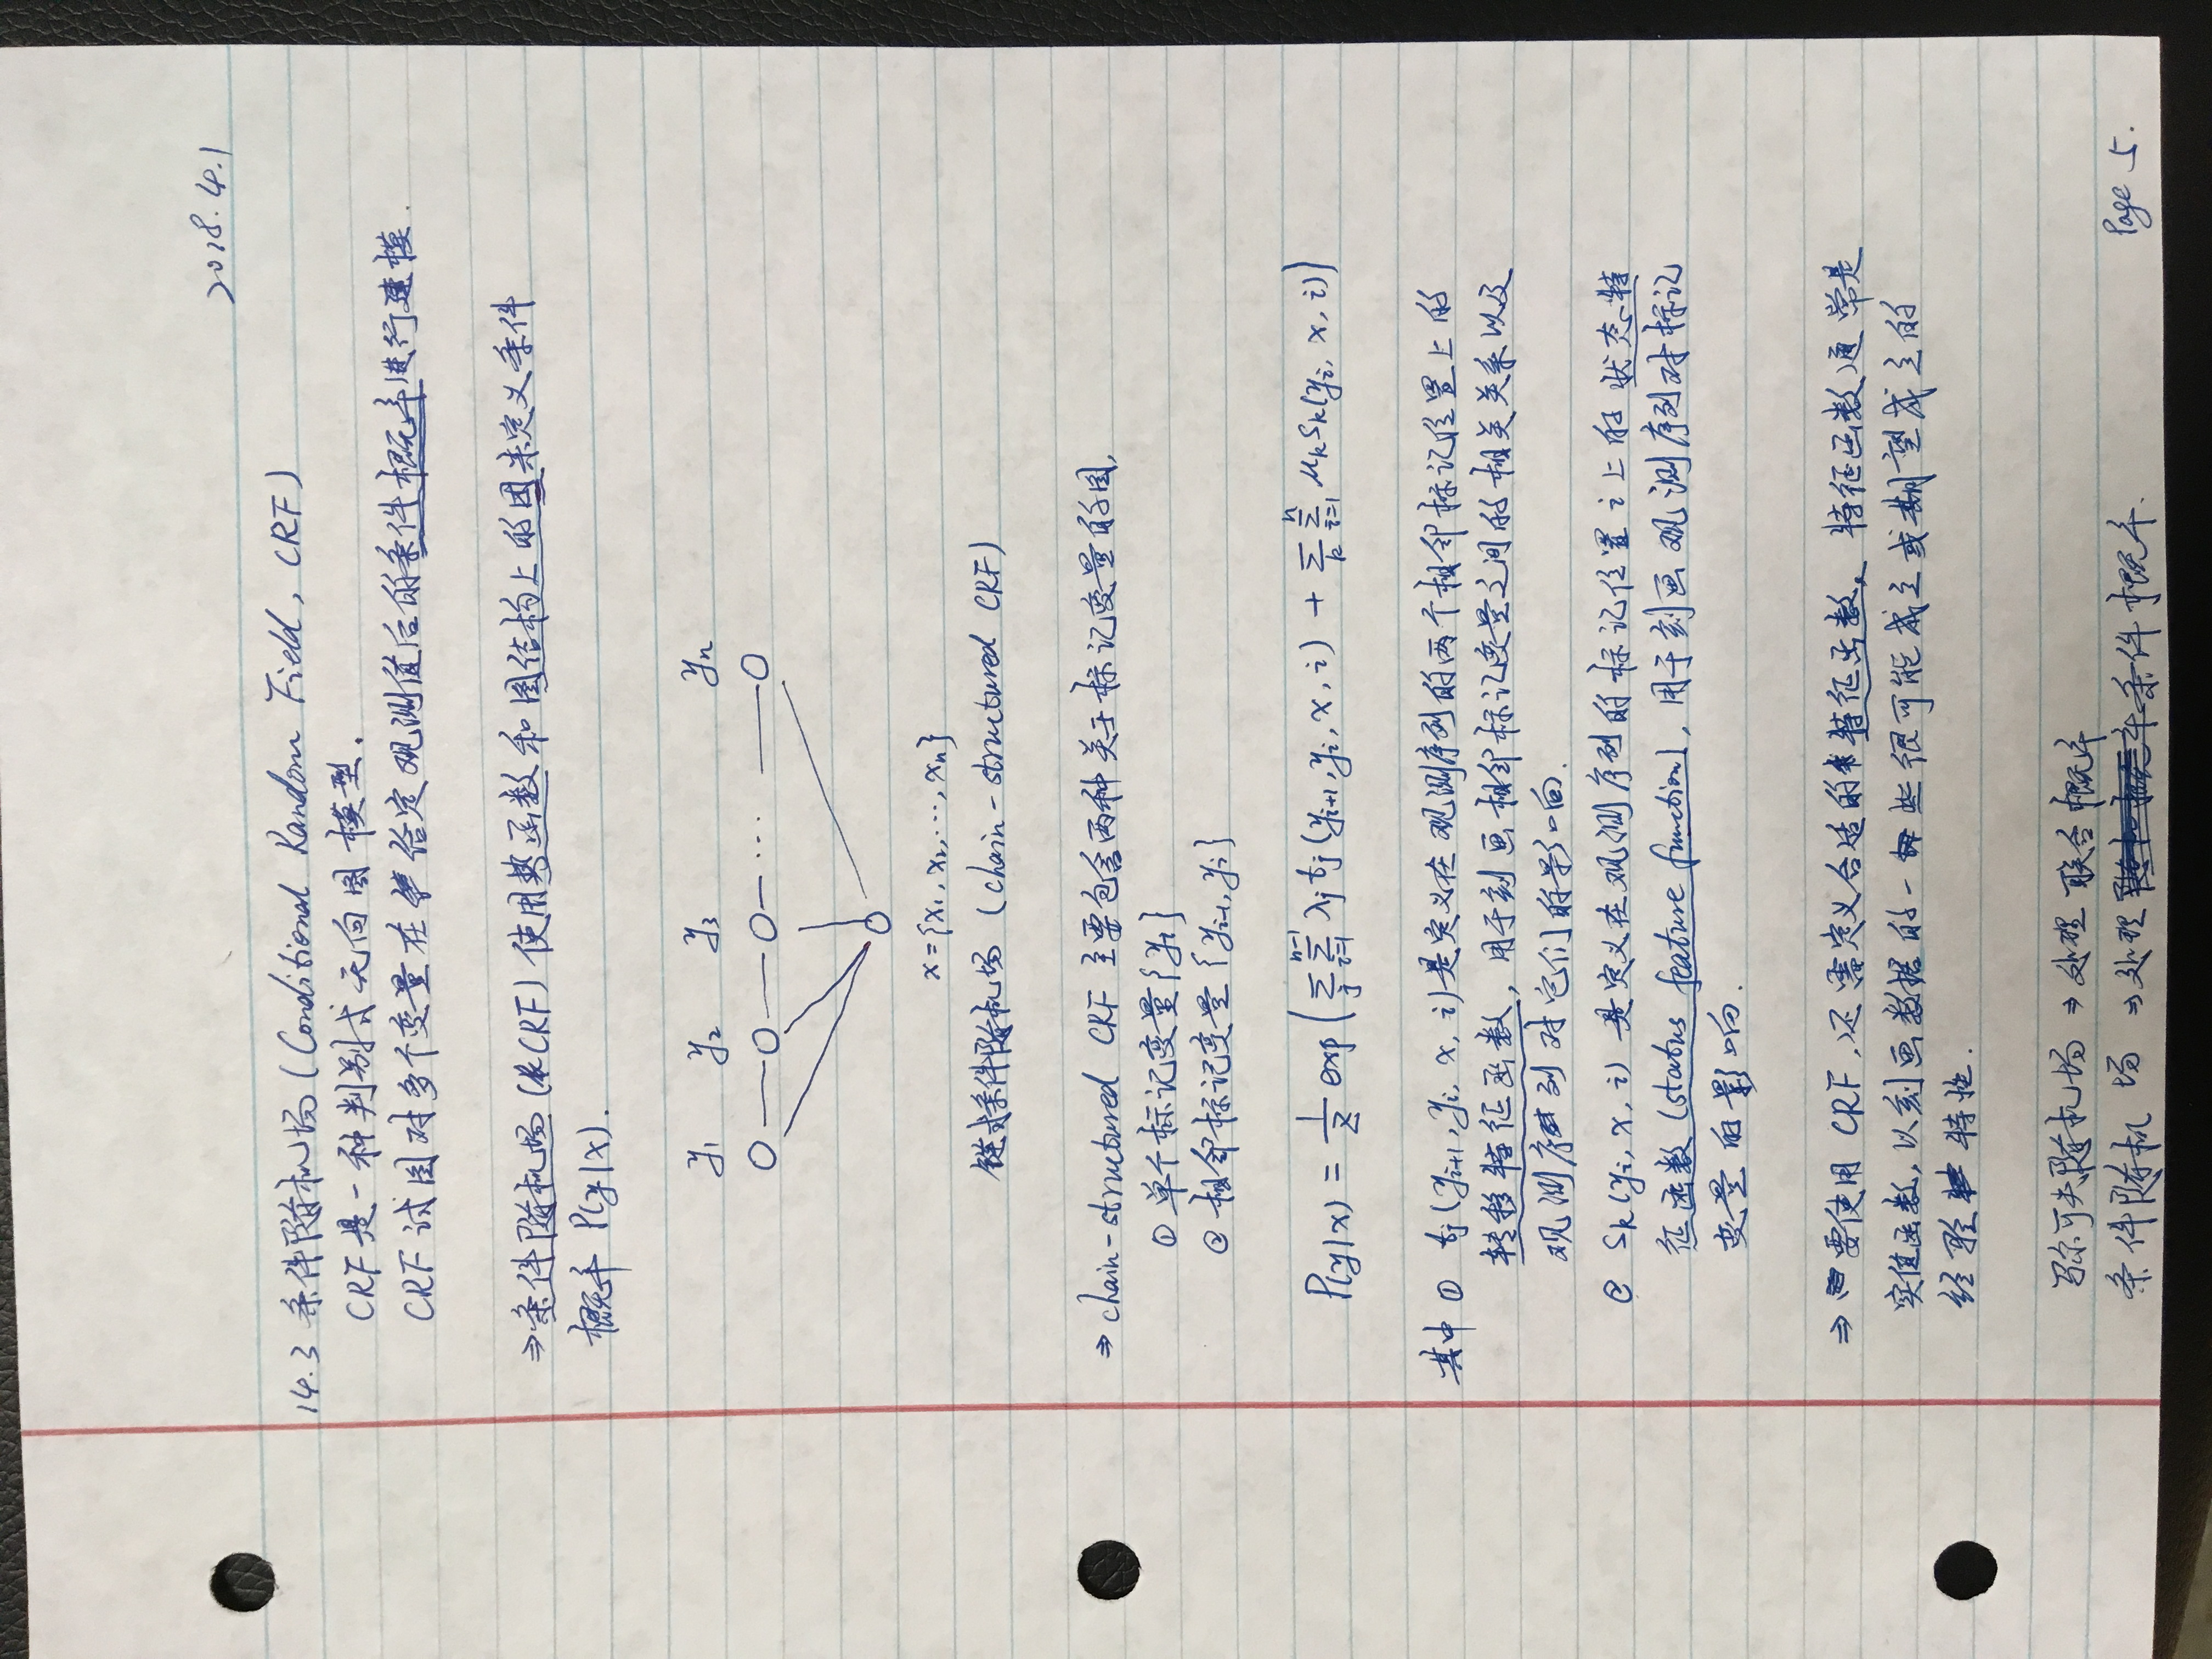 2018.4.1
14.3 条件随机场 (Conditional Random Field, CRF)
CRF是一种判别式无向图模型.
CRF试图对多个变量在给定观测值后的条件概率进行建模.
⇒条件随机场 (CRF) 使用势函数和图结构上的团来定义条件
概率 P(y|x).
y₁ y₂ y₃ yₙ
...
x={x₁, x₂, ..., xₙ}
链式条件随机场 (chain-structured CRF)
⇒ chain-structured CRF 主要包含两种关于标记变量的团,
① 单个标记变量{yᵢ}
② 相邻标记变量{yᵢ₋₁, yᵢ}
P(y|x) = 1/Z exp(∑ⱼ ∑ᵢ₌₁ⁿ⁻¹ λⱼtⱼ(yᵢ₊₁, yᵢ, x, i) + ∑ₖ ∑ᵢ₌₁ⁿ μₖsₖ(yᵢ, x, i))
其中 ① tⱼ(yᵢ₊₁, yᵢ, x, i)是定义在观测序列的两个相邻标记位置上的
转移特征函数, 用于刻画相邻标记变量之间的相关关系以及
观测序列对它们的影响.
② sₖ(yᵢ, x, i) 是定义在观测序列的标记位置 i 上的状态特
征函数 (status feature function), 用于刻画观测序列对标记
变量的影响.
⇒ 要使用 CRF, 还需定义合适的特征函数, 特征函数通常是
实值函数, 以刻画数据的一些很可能成立或期望成立的
经验特性.
马尔可夫随机场 ⇒ 处理 联合概率
条件随机场 ⇒ 处理 条件概率.
Page 5.